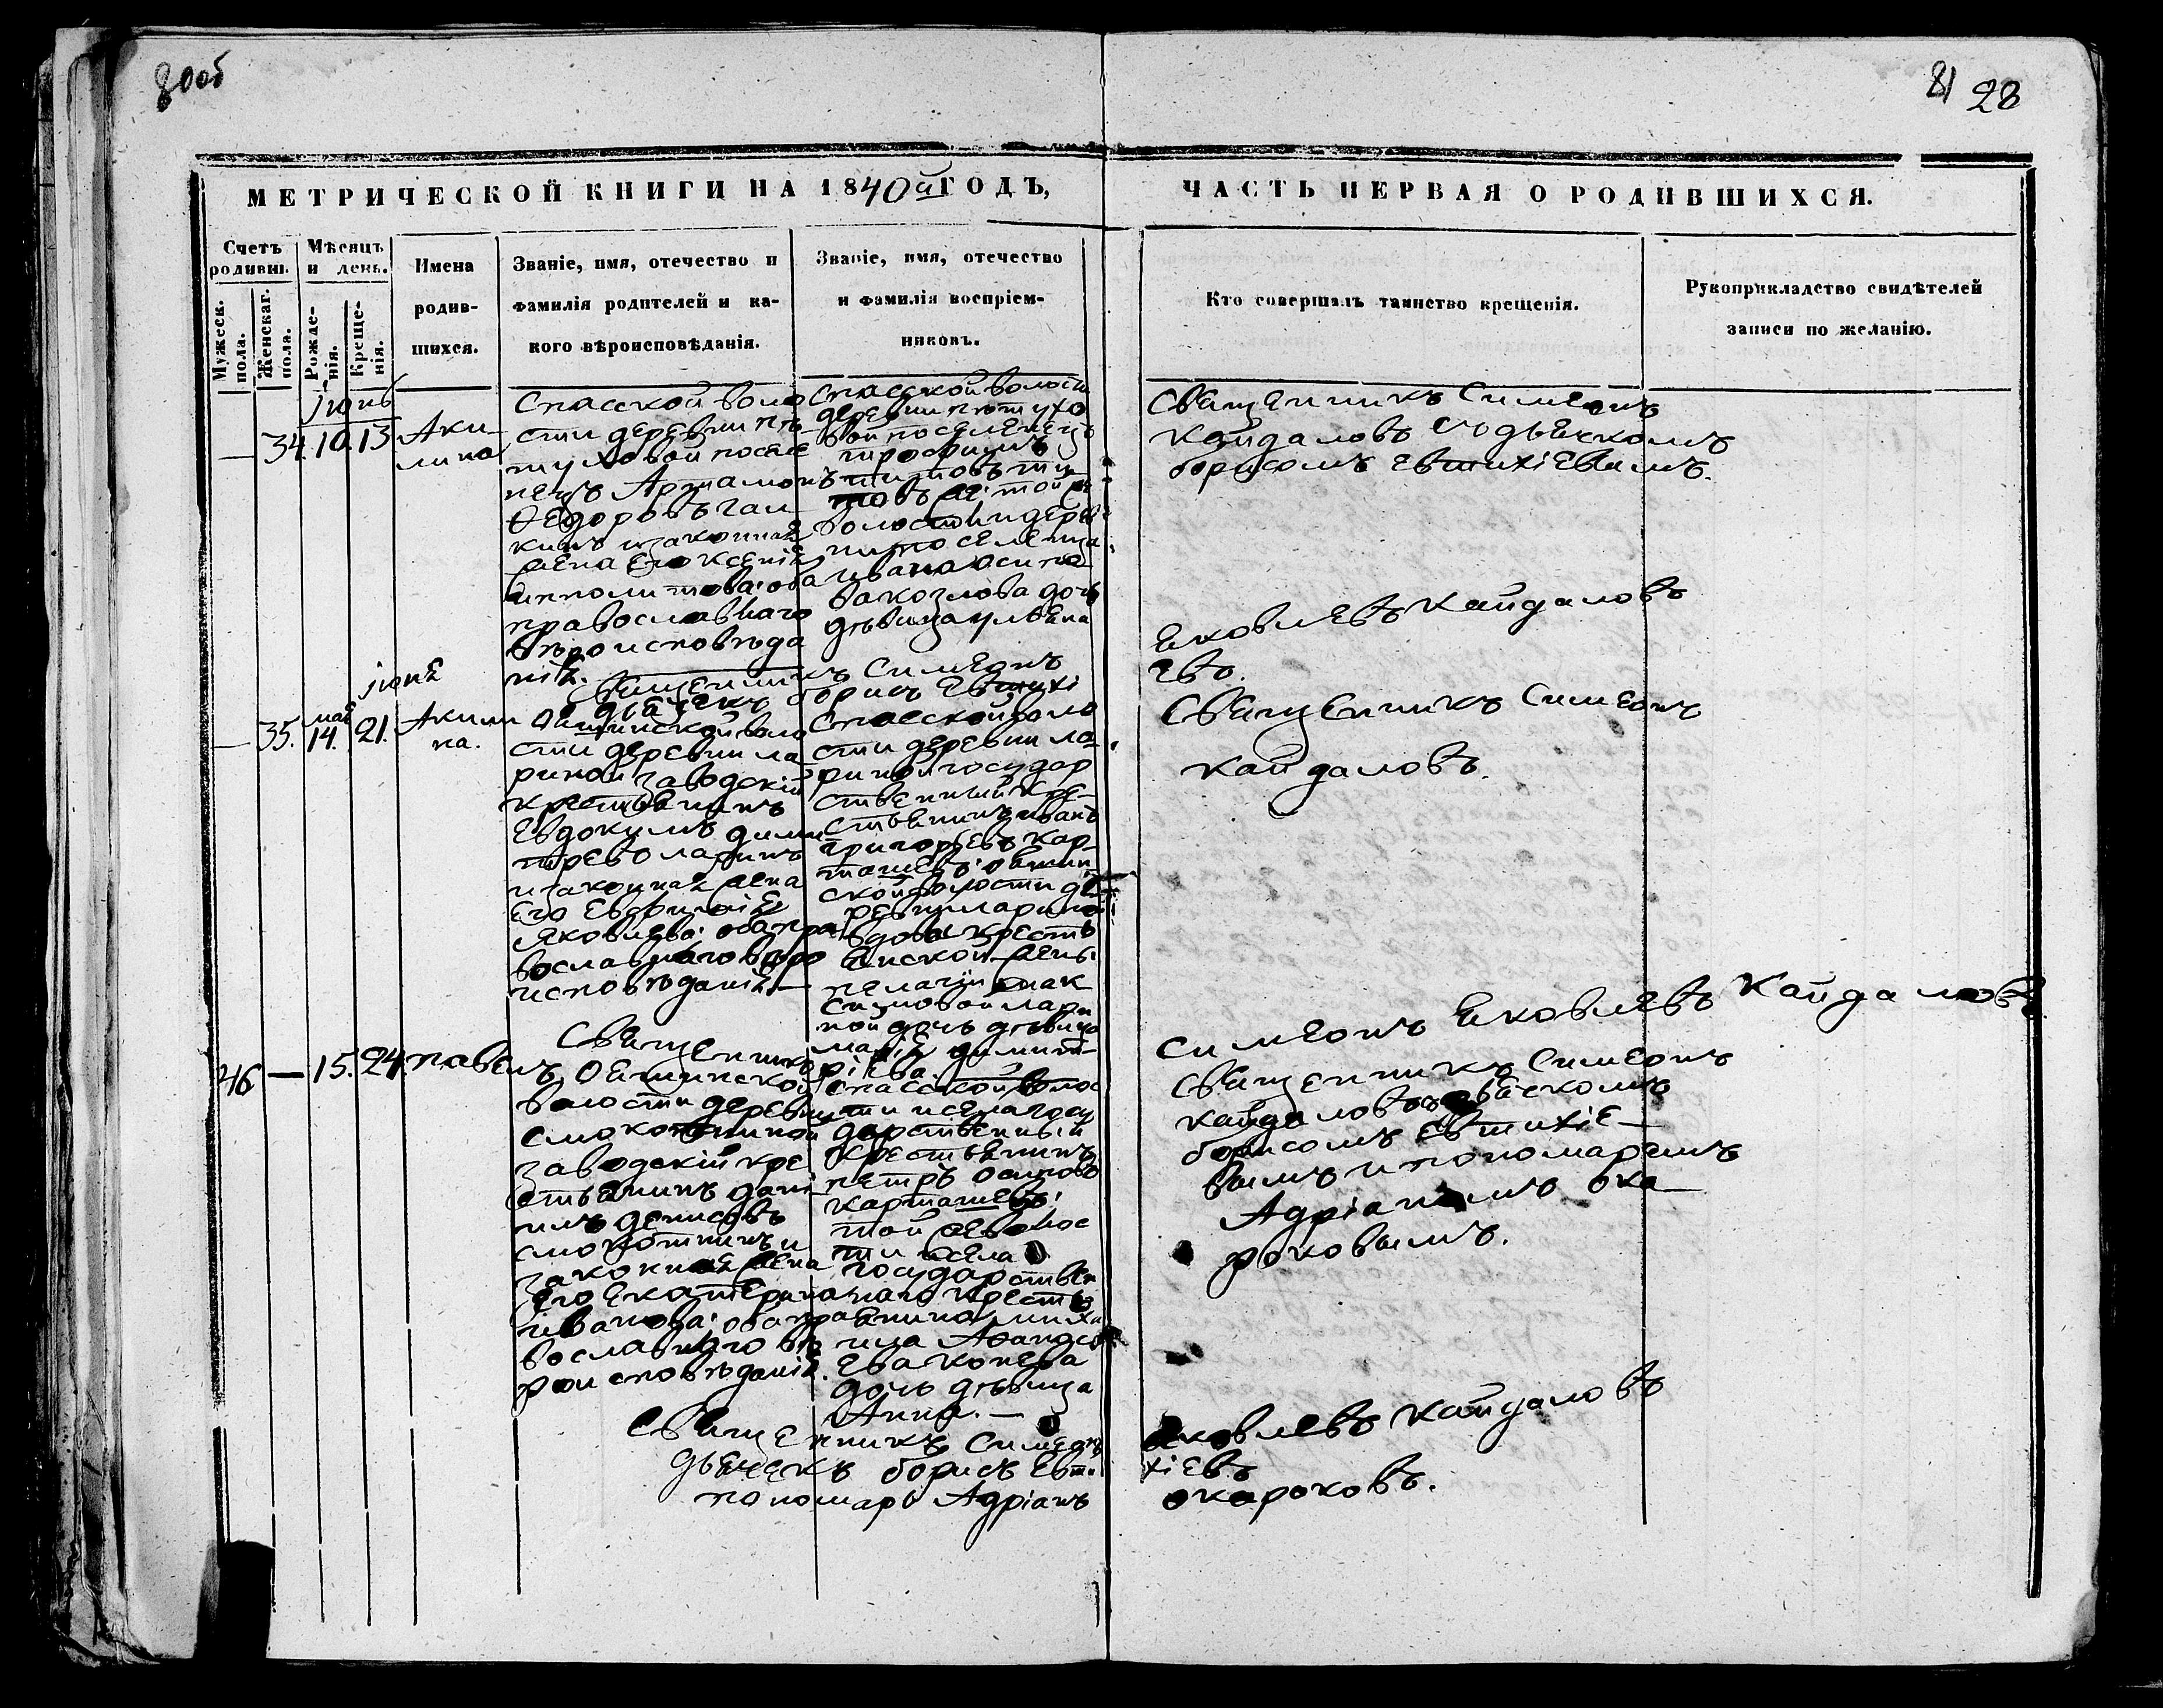 80об
81 28
МЕТРИЧЕСКОЙ КНИГИ НА 1840й ГОДЪ,
ЧАСТЬ ПЕРВАЯ О РОДИВШИХСЯ.
Счетъ родивш.
Мужеск. пола.
Женскаг. пола.
Мѣсяцъ и день.
Рожденія.
Крещенія.
Имена
родив-
шихся.
Званіе, имя, отечество и
фамилія родителей и ка-
кого вѣроисповѣданія.
Званіе, имя, отечество
и фамилія воспріем-
никовъ.
Кто совершалъ таинство крещенія.
Рукоприкладство свидѣтелей
записи по желанію.
іюнь
— 34. 10. 13
Аки-
лина
Спасской воло
сти деревни пѣ-
туховой поселе
нецъ Артамонъ
Ѳедоровъ Гал
кинъ и законная
жена его Ксенія
Ипполитова: оба
православнаго
вѣроисповѣда
нія.
Спасской волости
деревни пѣтухо
вой поселенецъ
Трофимъ
Титовъ
тойже
волости и дерев
ни поселенца
Ивана Осипо
ва Козлова дочь
дѣвица Ульяна
Священникъ Симеонъ
Кайдаловъ съ дьячкомъ
Борисомъ Евтихіевымъ.
Священникъ Симеонъ
Яковлевъ Кайдаловъ
дьячекъ Борисъ Евтихі
евъ.
іюня
мая
— 35. 14. 21.
Акили
на.
Ояшинской воло
сти деревни ла
риной заводскій
крестьянинъ
Евдокимъ Дими
тревъ Ларинъ
и законная жена
его Евфимія
Яковлева: оба пра
вославнаго вѣро
исповѣданія. —
Спасской воло
сти деревни ла
риной государ
ственный кре-
стьянинъ Иванъ
Григорьевъ Кар-
ташевъ: Ояшин
ской волости де
ревни лариной
вдовы крестья
янской жены
Пелагіи Мак
симовой Лари
ной дочь дѣвица
Марія Димит-
ріева.
Священникъ Симеонъ
Кайдаловъ.
Священникъ
Симеонъ Яковлевъ Кайдаловъ
46 — 15. 24. Павелъ
Ояшинской
волости деревни
Смокотиной
заводскій кре
стьянинъ Дани
илъ Денисовъ
Смокотинъ и
законная жена
его Екатерина
Иванова: оба пра
вославнаго вѣ
роисповѣданія.
Спасской воло
сти и села госу
дарственный
крестьянинъ
Петръ Осиповъ
Карташевъ:
той же волос
ти и села
государствен
наго кресть
янина Миха
ила
Ева Конева
дочь дѣвица
Анна. —
Священникъ Симеонъ
Кайдаловъ съ дьячкомъ
Борисомъ Евтихіе-
вымъ и пономаремъ
Адріаномъ Ока-
роковымъ.
Священникъ Симеонъ
Яковлевъ Кайдаловъ
дьячекъ Борисъ Евти
хіевъ
пономарь Адріанъ
Окароковъ.